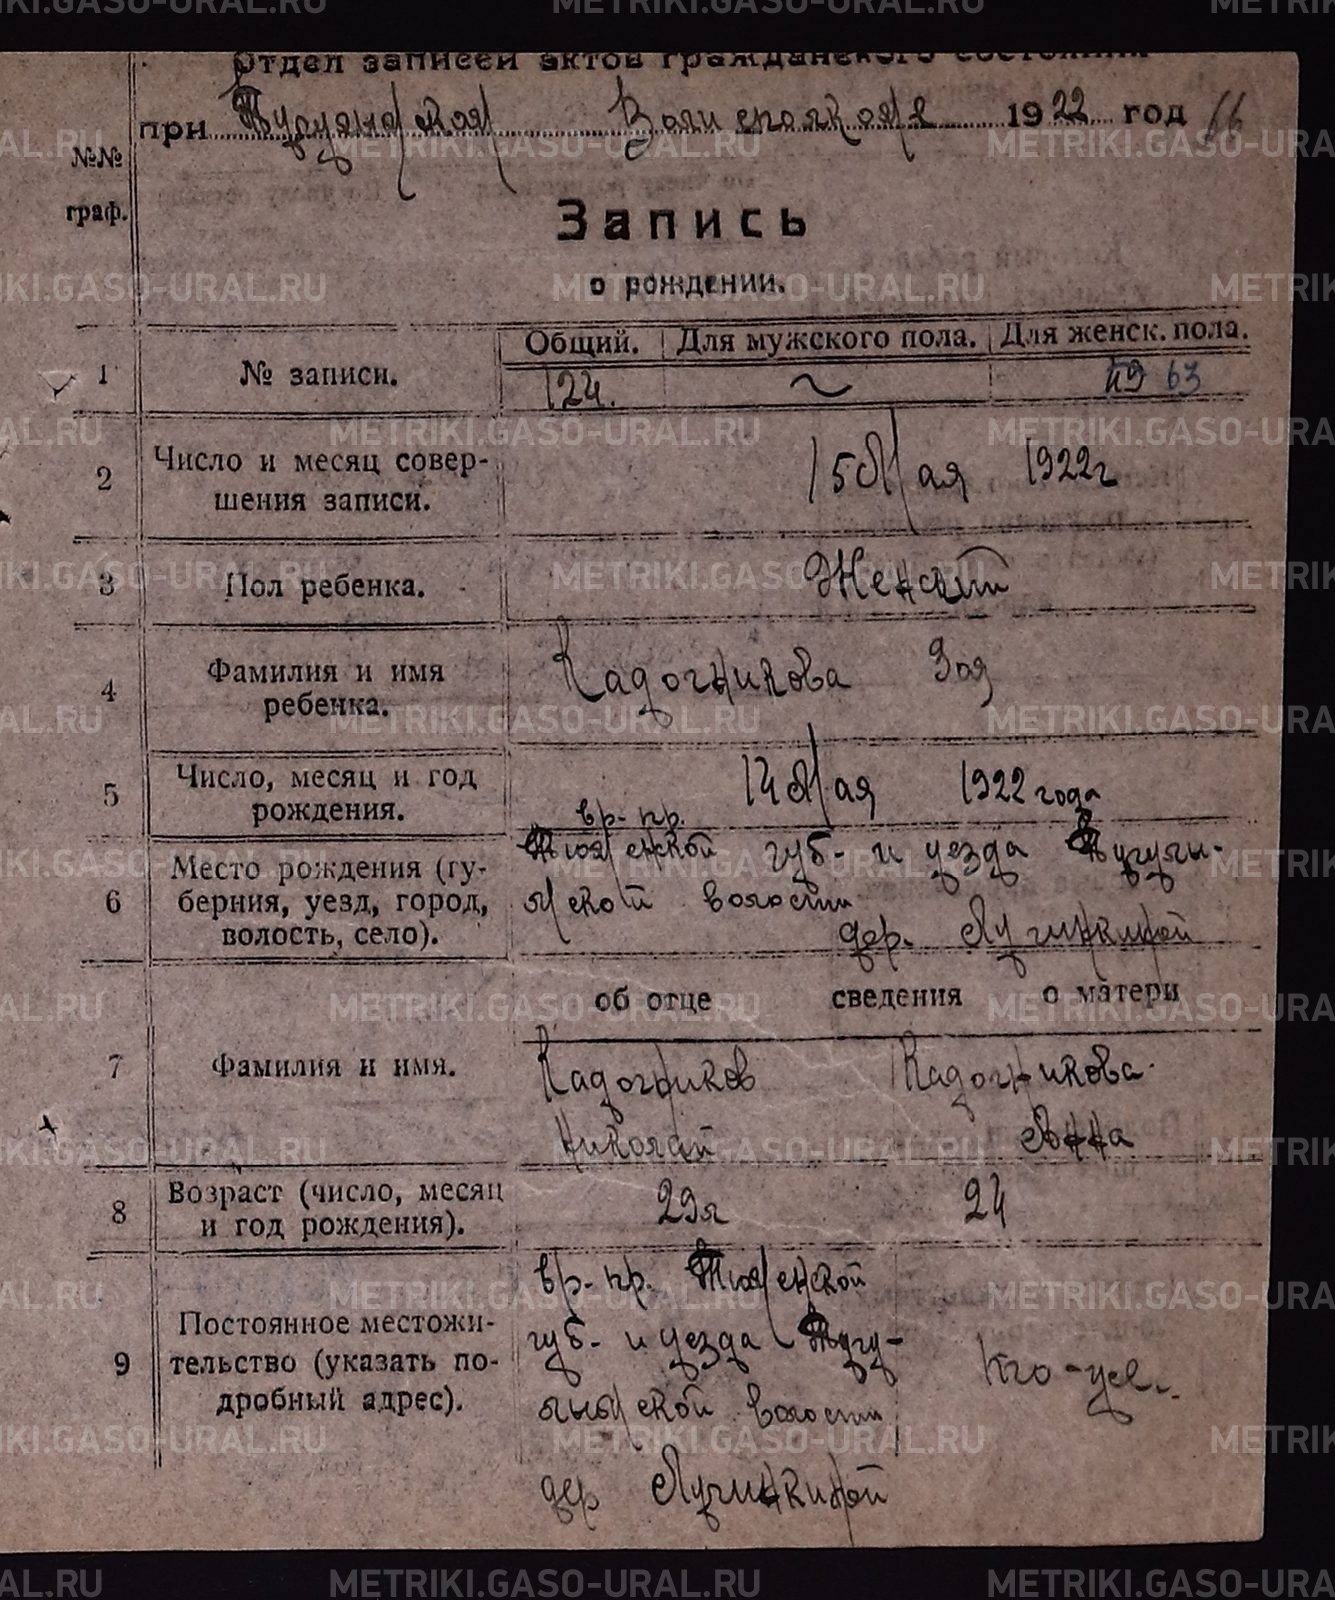 Отдел записей актов гражданского состояния
при Тугулымском Волисполкоме 1922 год 66
№№ граф.
Запись
о рождении.
Общий. Для мужского пола. Для женск. пола.
1 № записи. 124. ~ 63
2 Число и месяц совер-
шения записи. 15 Мая 1922г
3 Пол ребенка. Женский
4 Фамилия и имя
ребенка. Кадочникова Зоя
5 Число, месяц и год
рождения. 14 Мая 1922 года
6 Место рождения (гу-
берния, уезд, город,
волость, село).
вр. пр.
Тюменской губ- и уезда Тугулы-
мской волости
дер. Лучинкиной
об отце сведения о матери
7 Фамилия и имя. Кадочников Кадочникова
Николай Анна
8 Возраст (число, месяц
и год рождения). 29л 24
9 Постоянное местожи-
тельство (указать по-
дробный адрес).
вр. пр. Тюменской
губ- и уезда Тугу-
лымской волости
дер Лучинкиной
METRIKI.GASO-URAL.RU